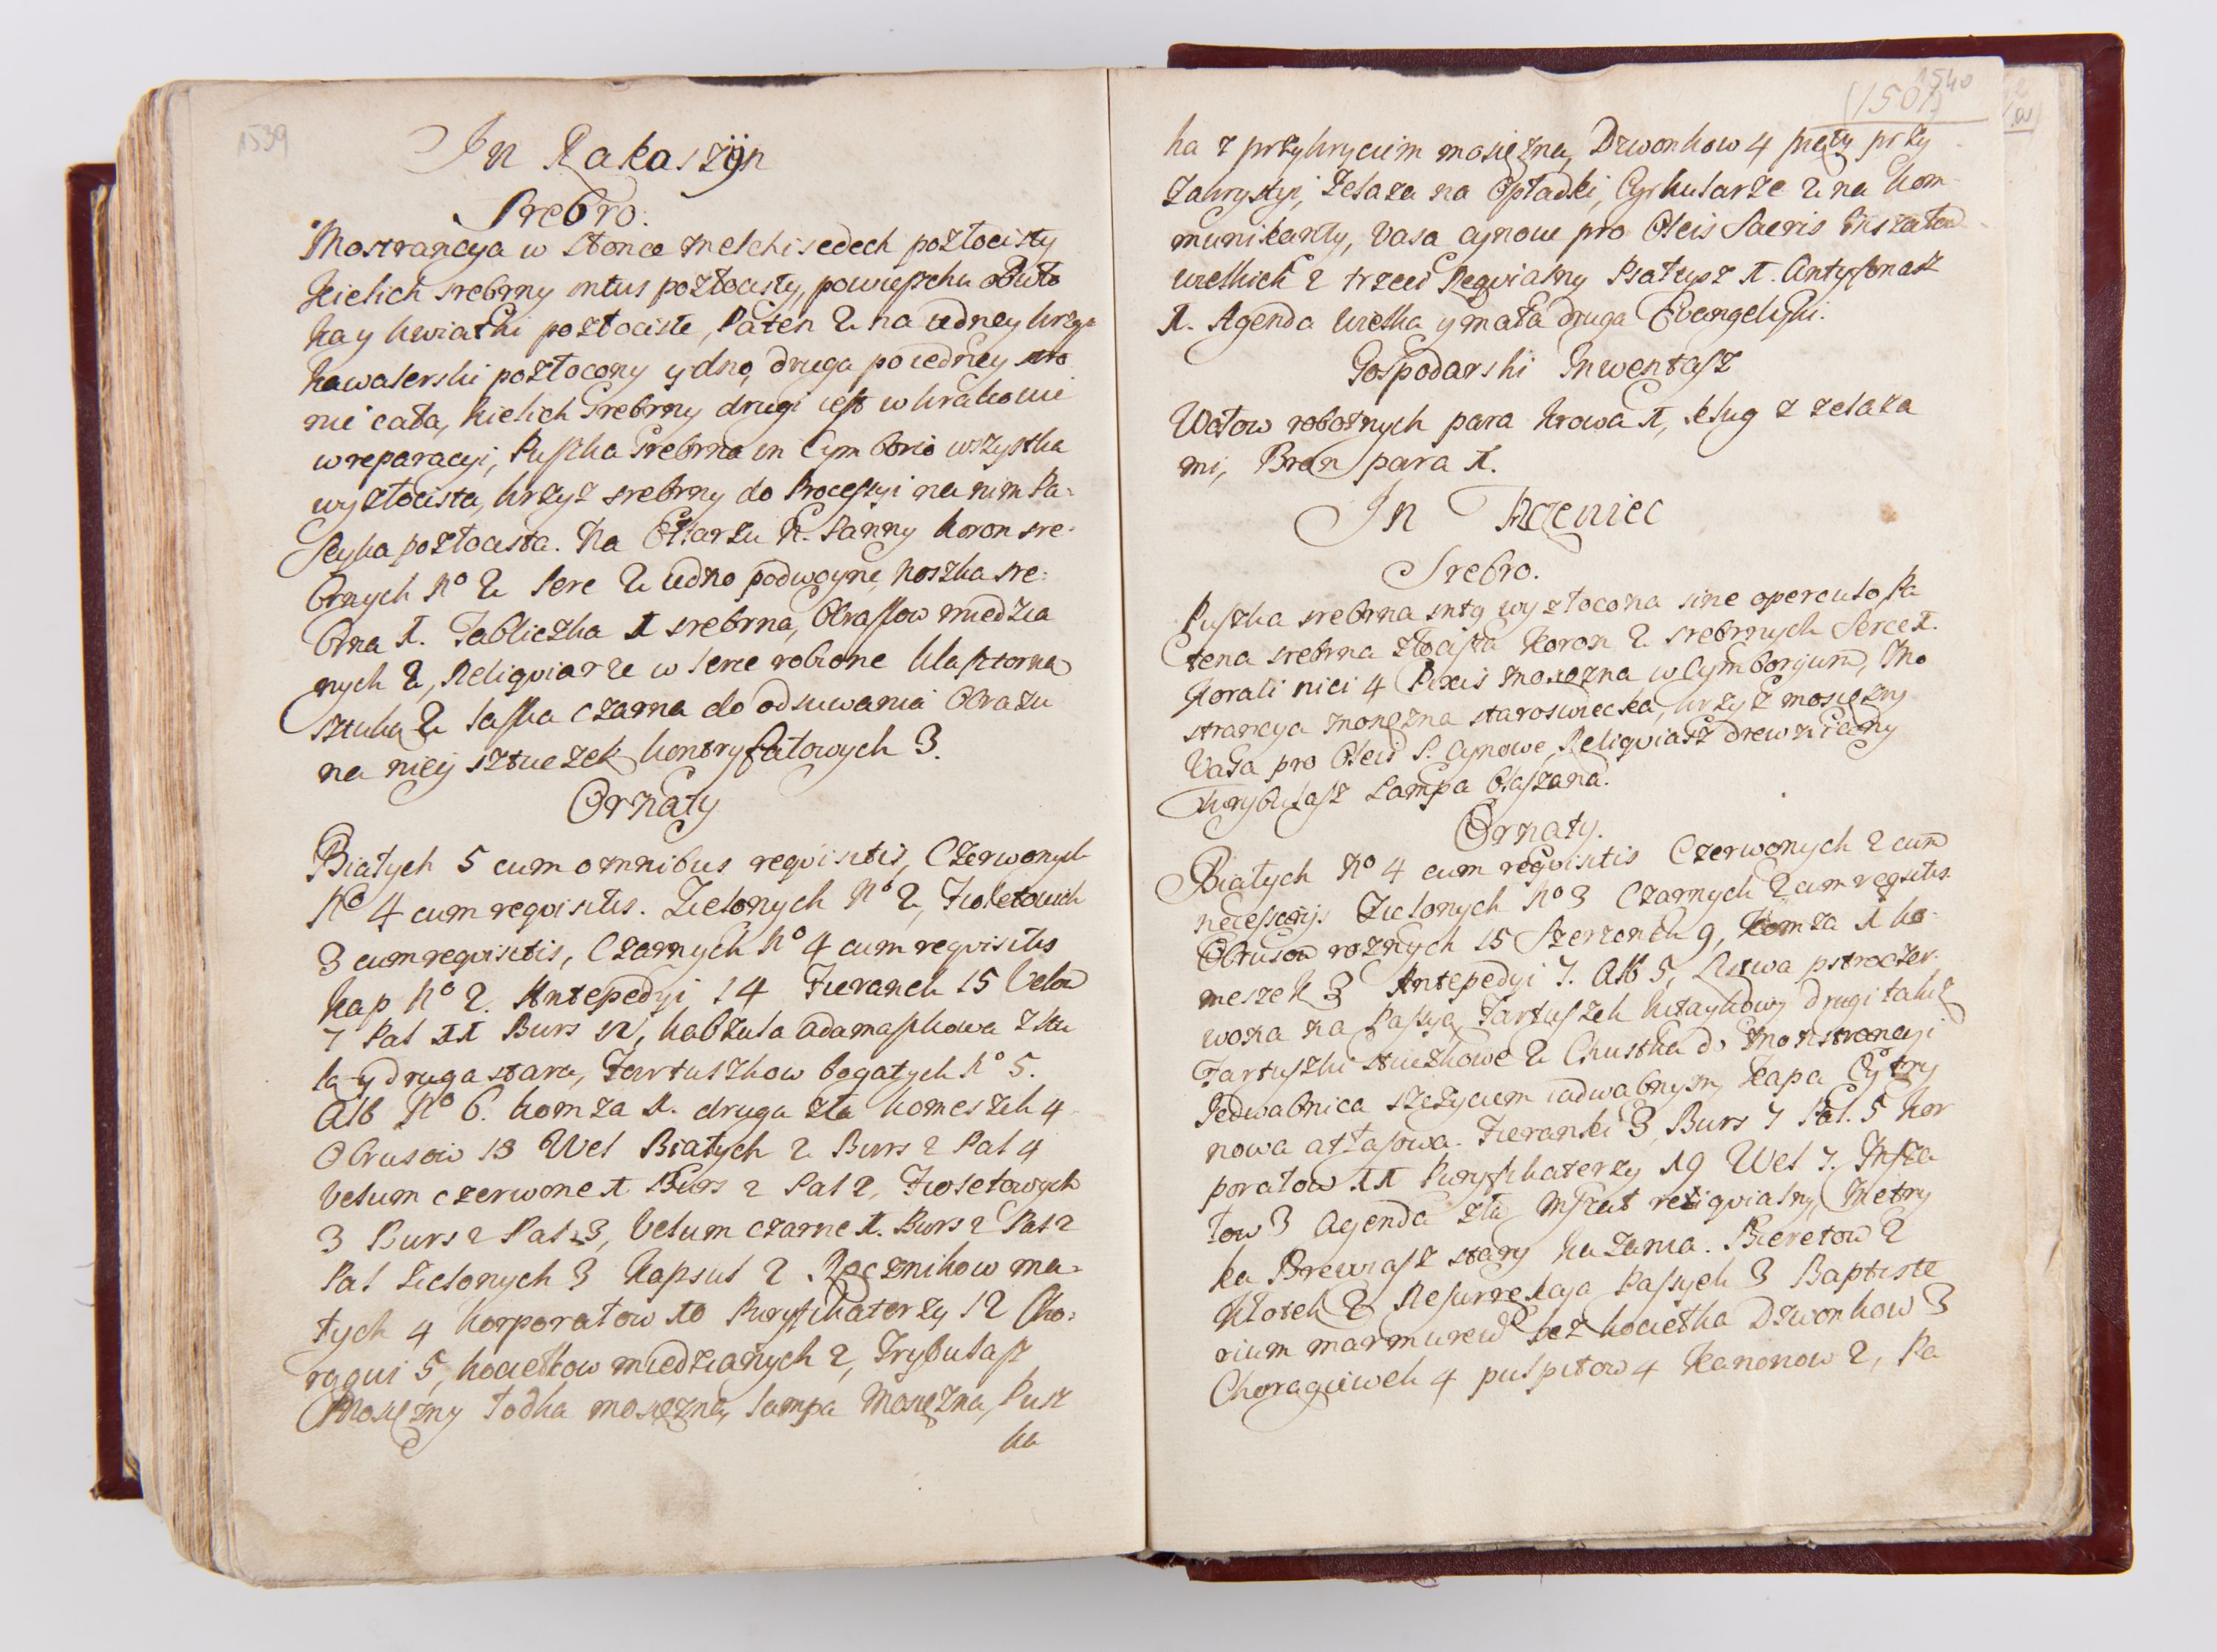 1539
In Rakaszÿn
Srebro.
Mostrancya w Słonce Melchisedech pozłocisty
Kielich srebrny intus pozłocisty, powierzchu
ka y kwiatki pozłociste, Paten 2 na iedney krzyz
kawalerski pozłocony y dno, druga po iedney stro
nie cała, Kielich srebrny drugi iest w krakowie
w reparacyi, Puszka srebrna in Cymborio wszystka
wyzłocista, krzyz srebrny do Processyi na nim Pa=
ssyika pozłocista. Na Ołtarzu N. Panny koron sre=
brnych No 2 Serc 2 iedno podwoyne, Noszka sre=
brna 1. Tabliczka 1 srebrna, Obrassow miedzia
nych 2, Reliqviarze w Serce robione klasztorna
sztuka 2 Laska czarna do odsuwania Obrazu
na niey sztuczek kontryfałowych 3.
Ornaty
Białych 5 cum omnibus reqvisitis, Czerwonych
No 4 cum reqvisitis. Zielonych No 2, Fioletowich
3 cum reqvisitis, Czarnych No 4 cum reqvisitis
Kap No 2. Antepedyi 14 Firanek 15 Velow
7 Pal 11 Burs 12, kabzula adamaszkowa
ka y druga stara, Fartuszkow bogatych No 5.
Alb No 6. komza 1. druga zła komeszek 4
Obrusow 13 Wel Białych 2 Burs 2 Pal 4
Velum czerwone 1 Burs 2 Pal 2, Fioletowych
3 Burs 2 Pal 3, Velum czarne 1. Burs 2 Pal 2
Pal zielonych 3 Kapsul 2 Ręcznikow ma=
łych 4 Korporałow 10 Puryfikaterzy 12 Cho=
rągwi 5, kociełkow miedzianych 2, Trybularz
Mosięzny Łodka mosięzna, Lampa Mosięzna, Pusz
ka
1540
(1501)
ka z przykryciem mosięzna, Dzwonkow 4 pręty przy
Zakrystyi, Zelaza na Opłatki, Cyrkularze 2 na kom=
munikanty, Vasa cynowe pro Oleis Sacris Mszałow
wielkich 2 trzeci Reqvialny Psałterz 1. Antyfonarz
1. Agenda wielka y mała druga Ewangelyki.
Gospodarski Inwentarz
Wołow robotnych para Krowa 1, Pług z zelaza
mi, Bron para 1.
In Trzeniec
Srebro.
Puszka srebrna intq wyzłocona sine operculo Pa
tena srebrna złocista Koron 2 srebrnych Serce 1.
Korali nici 4 Pixis mosięzna w Cymborijum, Mo
strancya mosięzna staroswiecka, krzyz mosięzny
Vasa pro Oleis S. Cynowe, Reliqviarz drewniany
Turybularz Lampa Blaszana.
Ornaty.
Białych No 4 cum reqvisitis Czerwonych 2 cum
necessarijs Zielonych No 3 Czarnych 2 cum reqsitis
Obrusow roznych 15 Szerzonek 9, Komza 1 ko=
meszek 3 Antepedyi 7. Alb 5, Listwa pstroczer=
wona na Passya Fartuszek kitaykowy drugi takiz
Fartuszki stuczkowe 2 Chustka do Monstrancyi
Jedwabnica szczyciem iadwabnym, Kapa Cytry
nowa atłasowa. Firanki 3, Burs 7 Pal. 5 Kor
porałow 11 Puryfikaterzy 19 Wel 7. Msza
łow 3 Agenda zła Mszał reliqvialny, Metry
ka Brewiarz stary Kazania. Bieretow 2
Kłotek 2 Resurrekcya Passyek 3 Baptiste
rium marmurew bez kociełka Dzwonkow 3
Choragiewek 4 pulpitow 4 Kanonow 2, Pa